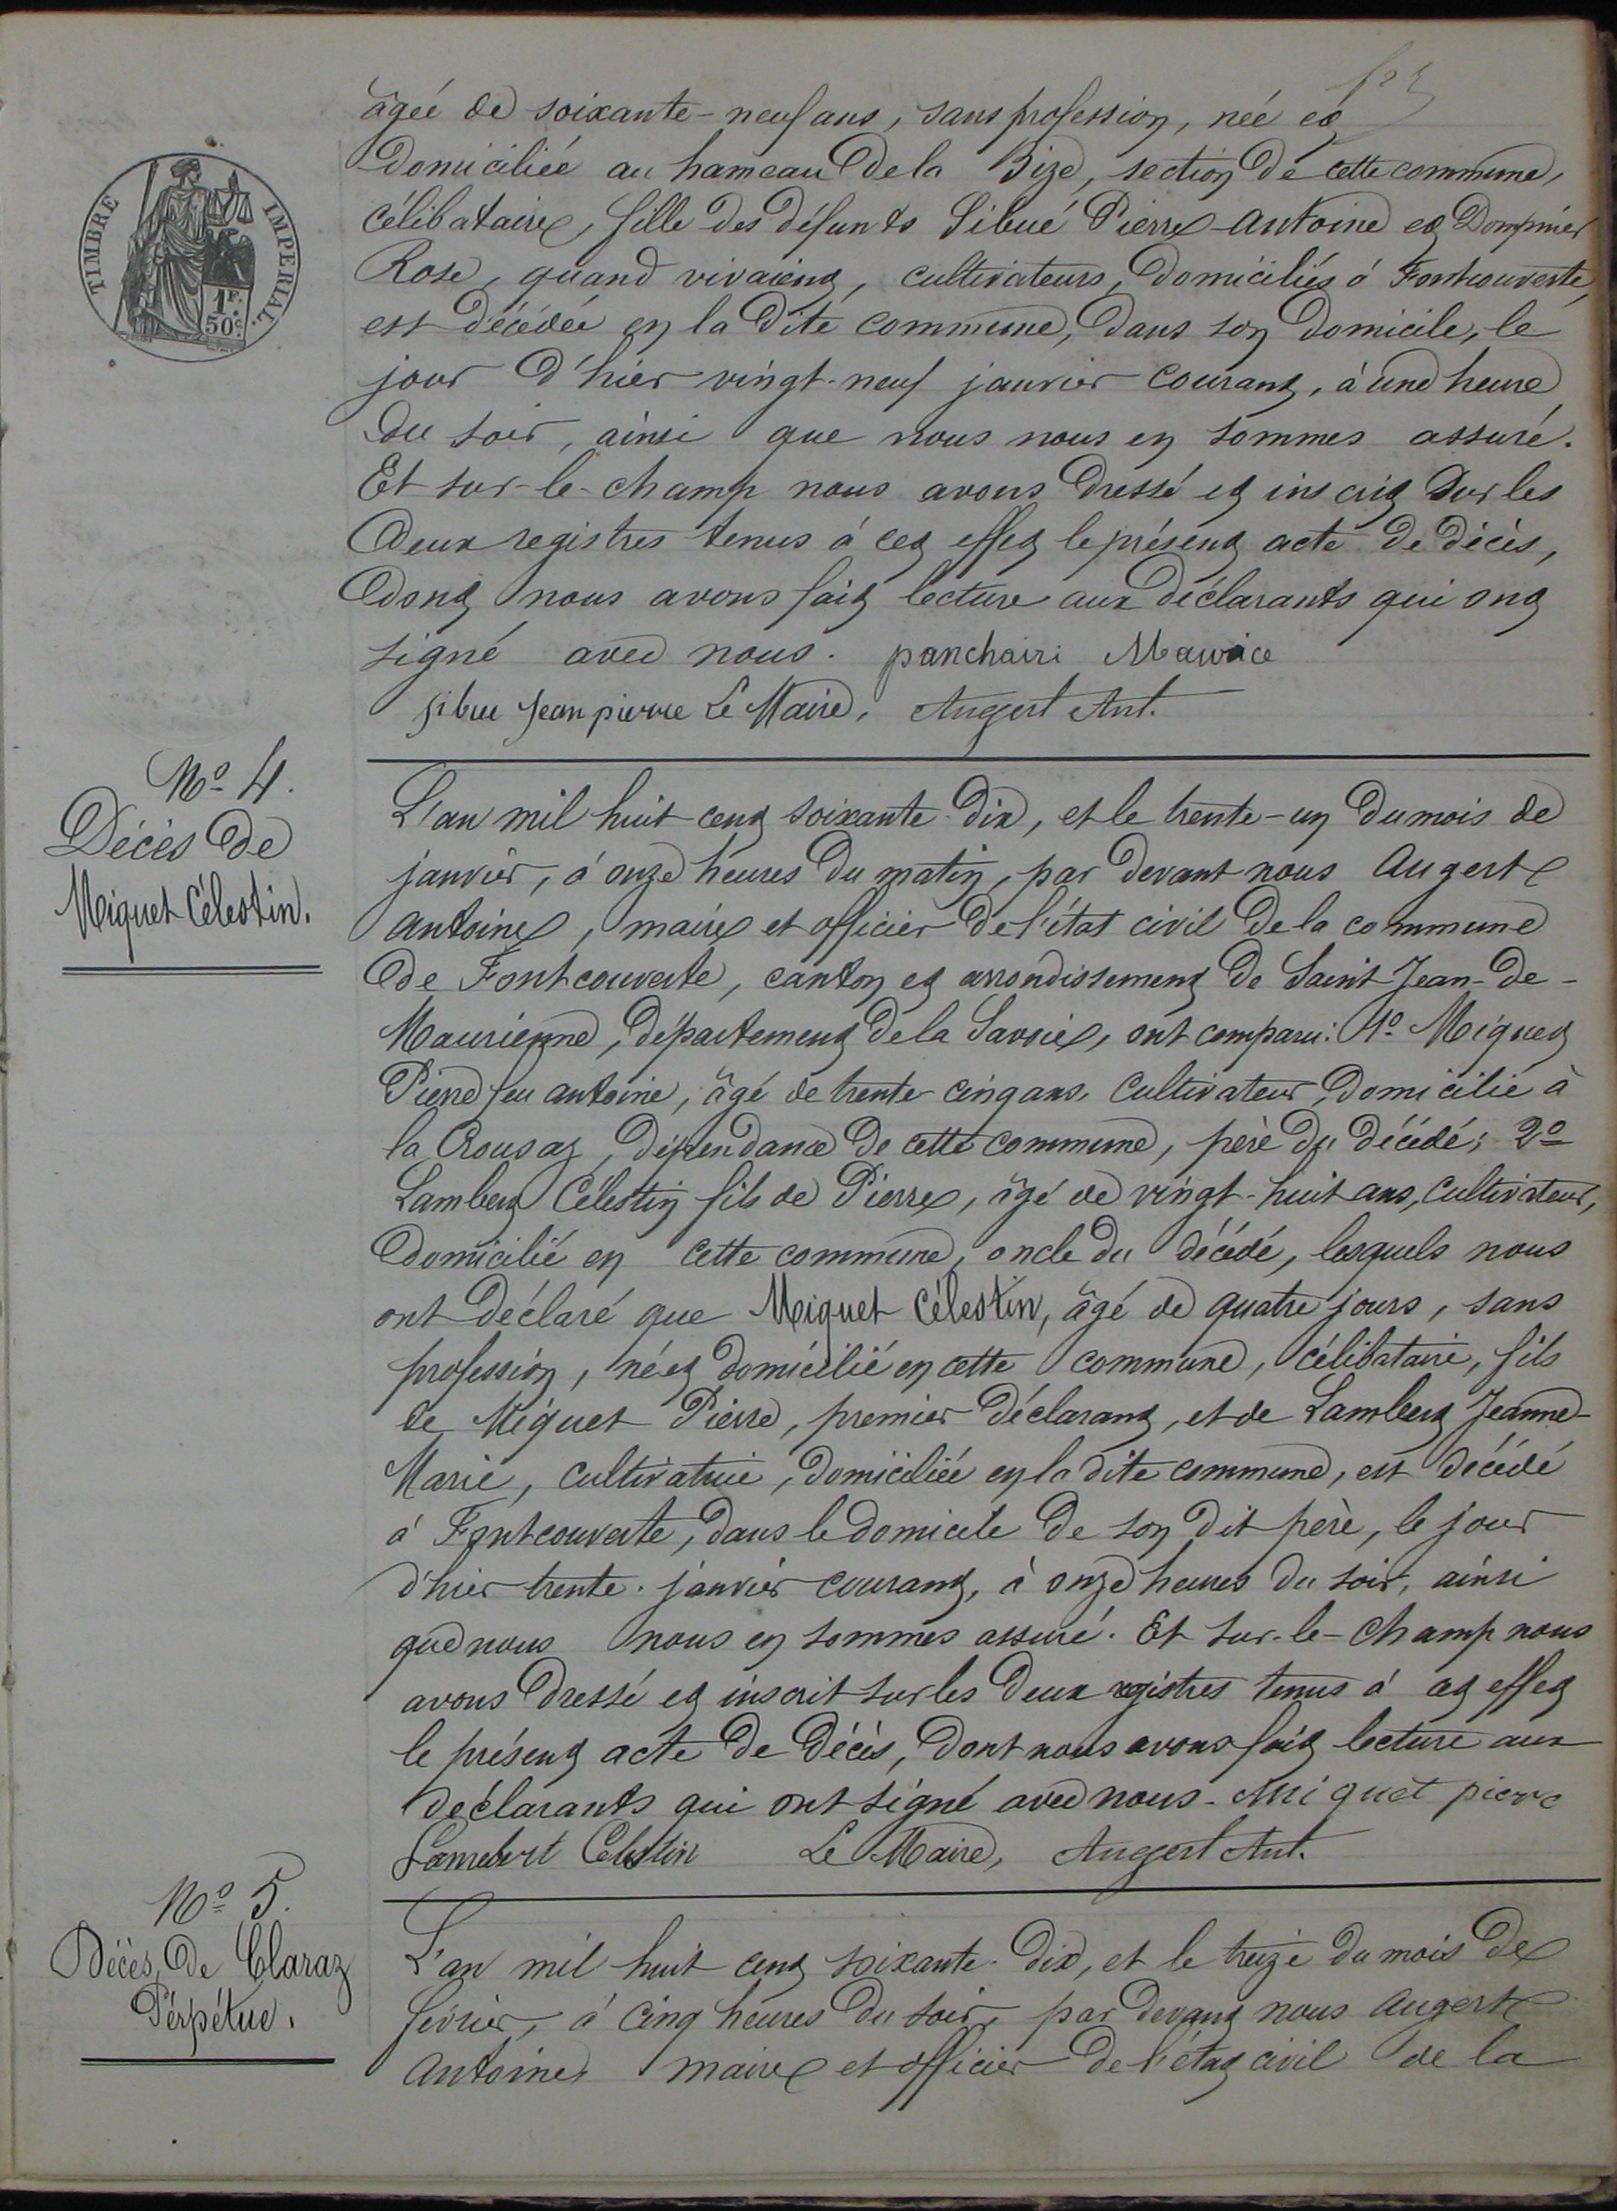 âgée de soixante-neuf ans, sans profession, née et
domiciliée au hameau de la Bize, section de cette commune,
célibataire, fille des défunts Sibué Pierre-Antoine et Dompnier
Rose, quand vivaient, cultivateurs, domiciliés à Fontcouverte,
est décédée en la dite commune, dans son domicile, le
jour d'hier vingt-neuf janvier courant, à une heure
du soir, ainsi que nous nous en sommes assuré.
Et sur-le-champ nous avons dressé et inscrit sur les
deux registres tenus à cet effet le présent acte de décès,
dont nous avons fait lecture aux déclarants qui ont
signé avec nous. panchairi Maurice
sibue Jean pierre Le Maire, Augert Ant.
TIMBRE IMPERIAL
1F.
50c.
No 4.
Décès de
Miquet Célestin.
L'an mil huit cent soixante-dix, et le trente-un du mois de
janvier, à onze heures du matin, par devant nous Augert
Antoine, maire et officier de l'état civil de la commune
de Fontcouverte, canton et arrondissement de Saint-Jean-de-
Maurienne, département de la Savoie, ont comparu: 1o Miquet
Pierre feu antoine, âgé de trente-cinq ans, cultivateur, domicilié à
la Rousaz, dépendance de cette commune, père du décédé; 2o
Lambert Célestin fils de Pierre, âgé de vingt-huit ans, cultivateur,
domicilié en cette commune, oncle du décédé, lesquels nous
ont déclaré que Miquet Célestin, âgé de quatre jours, sans
profession, né et domicilié en cette commune, célibataire, fils
de Miquet Pierre, premier déclarant, et de Lambert Jeanne-
Marie, cultivatrice, domiciliée en la dite commune, est décédé
à Fontcouverte, dans le domicile de son dit père, le jour
d'hier trente janvier courant, à onze heures du soir, ainsi
que nous nous en sommes assuré. Et sur-le-champ nous
avons dressé et inscrit sur les deux registres tenus à cet effet
le présent acte de décès, dont nous avons fait lecture aux
déclarants qui ont signé avec nous. Miquet pierre
Lambert Celestin Le Maire, Augert Ant.
No 5.
Décès de Claraz
Pérpétue.
L'an mil huit cent soixante-dix, et le treize du mois de
février, à cinq heures du soir, par devant nous Augert
Antoine, maire et officier de l'état civil de la